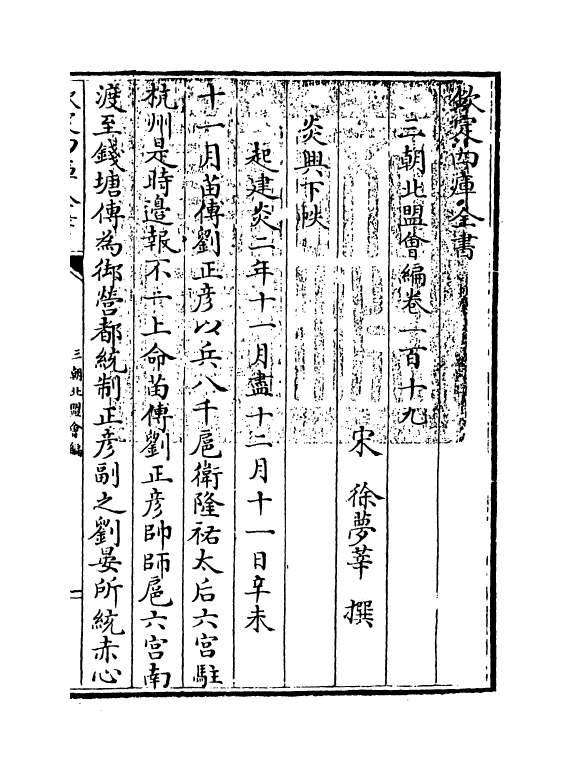 欽定四庫全書
三朝北盟會編卷一百十九
宋 徐夢莘 撰
炎興下帙
起建炎二年十一月盡十二月十一日辛未
十一月苗傅劉正彦以兵八千扈衛隆祐太后六宫駐
杭州是時邊報不一上命苗傅劉正彦帥師扈六宫南
渡至錢塘傅為御營都統制正彦副之劉晏所統赤心
三朝北盟會編